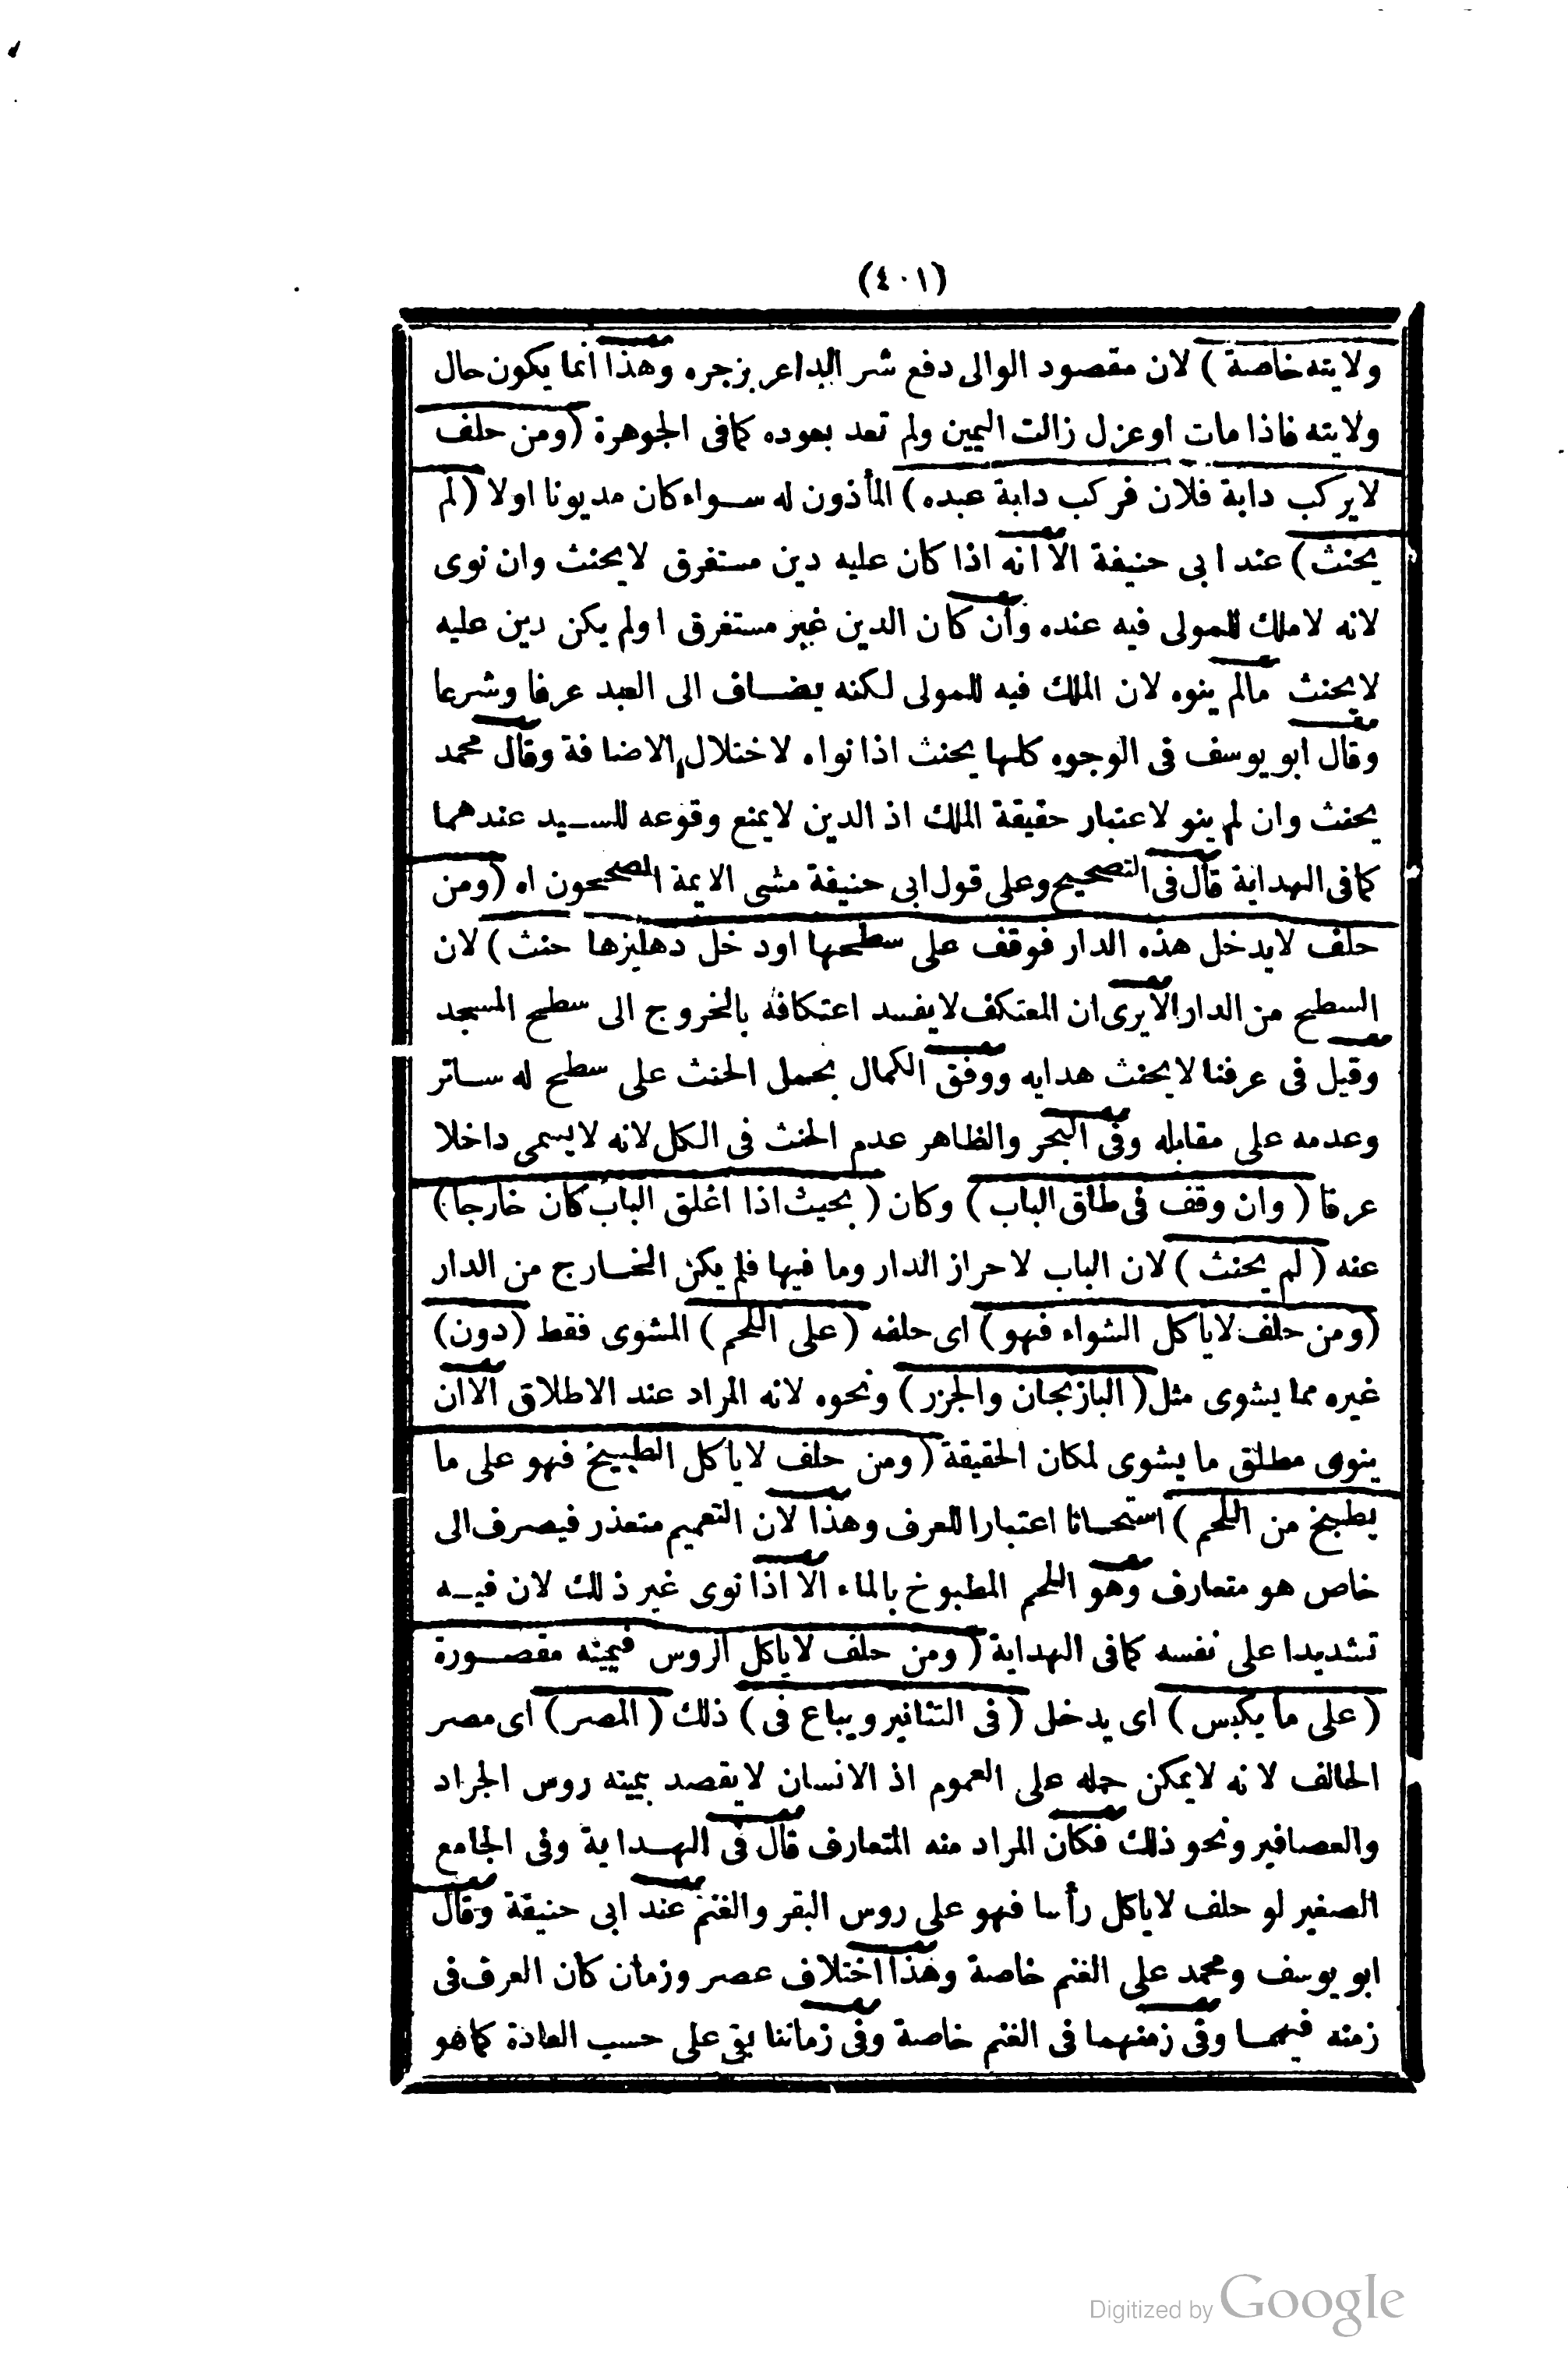 (٤٠١)
ولايته خاصة) لان مقصود الوالى دفع شر الداعر بزجره وهذا انما يكون حال
ولايته فاذا مات او عزل زالت اليمين ولم تعد بعوده كمافى الجوهرة (ومن حلف
لايركب دابة فلان فركب دابة عبده) المأذون له سواء كان مديونا اولا (لم
يحنث) عند ابى حنيفة الا انه اذا كان عليه دين مستغرق لايحنث وان نوى
لانه لاملك للمولى فيه عنده وان كان الدين غير مستغرق اولم يكن دين عليه
لايحنث مالم ينوه لان الملك فيه للمولى لكنه يضاف الى العبد عرفا وشرعا
وقال ابو يوسف فى الوجوه كلها يحنث اذا نواه لاختلال الاضافة وقال محمد
يحنث وان لم ينو لاعتبار حقيقة الملك اذ الدين لايمنع وقوعه للسيد عندهما
كمافى الهداية قال فى التصحيح وعلى قول ابى حنيفة مشى الايمة المصححون اه (ومن
حلف لايدخل هذه الدار فوقف على سطحها اودخل دهليزها حنث) لان
السطح من الدار الايرى ان المعتكف لايفسد اعتكافه بالخروج الى سطح المسجد
وقيل فى عرفنا لايحنث هدايه ووفق الكمال بحمل الحنث على سطح له ساتر
وعدمه على مقابله وفى البحر والظاهر عدم الحنث فى الكل لانه لايسمى داخلا
عرفا (وان وقف فى طاق الباب) وكان (بحيث اذا اغلق الباب كان خارجا)
عنه (لم يحنث) لان الباب لاحراز الدار وما فيها فلم يكن الخارج من الدار
(ومن حلف لاياكل الشواء فهو) اى حلفه (على اللحم) المشوى فقط (دون)
غيره مما يشوى مثل (البازنجان والجزر) ونحوه لانه المراد عند الاطلاق الاان
ينوى مطلق ما يشوى لمكان الحقيقة (ومن حلف لاياكل الطبيخ فهو على ما
يطبخ من اللحم) استحسانا اعتبارا للعرف وهذا لان التعميم متعذر فيصرف الى
خاص هو متعارف وهو اللحم المطبوخ بالماء الا اذا نوى غير ذلك لان فيه
تشديدا على نفسه كمافى الهداية (ومن حلف لاياكل الروس فيمينه مقصورة
(على ما يكبس) اى يدخل (فى التنانير ويباع فى) ذلك (المصر) اى مصر
الحالف لانه لايمكن حمله على العموم اذ الانسان لايقصد بيمينه روس الجراد
والعصافير ونحو ذلك فكان المراد منه المتعارف قال فى الهداية وفى الجامع
الصغير لو حلف لاياكل رأسا فهو على روس البقر والغنم عند ابى حنيفة وقال
ابو يوسف ومحمد على الغنم خاصة وهذا اختلاف عصر وزمان كان العرف فى
زمنه فيهما وفى زمنهما فى الغنم خاصة وفى زماننا يفتى على حسب العادة كماهو
Digitized by Google